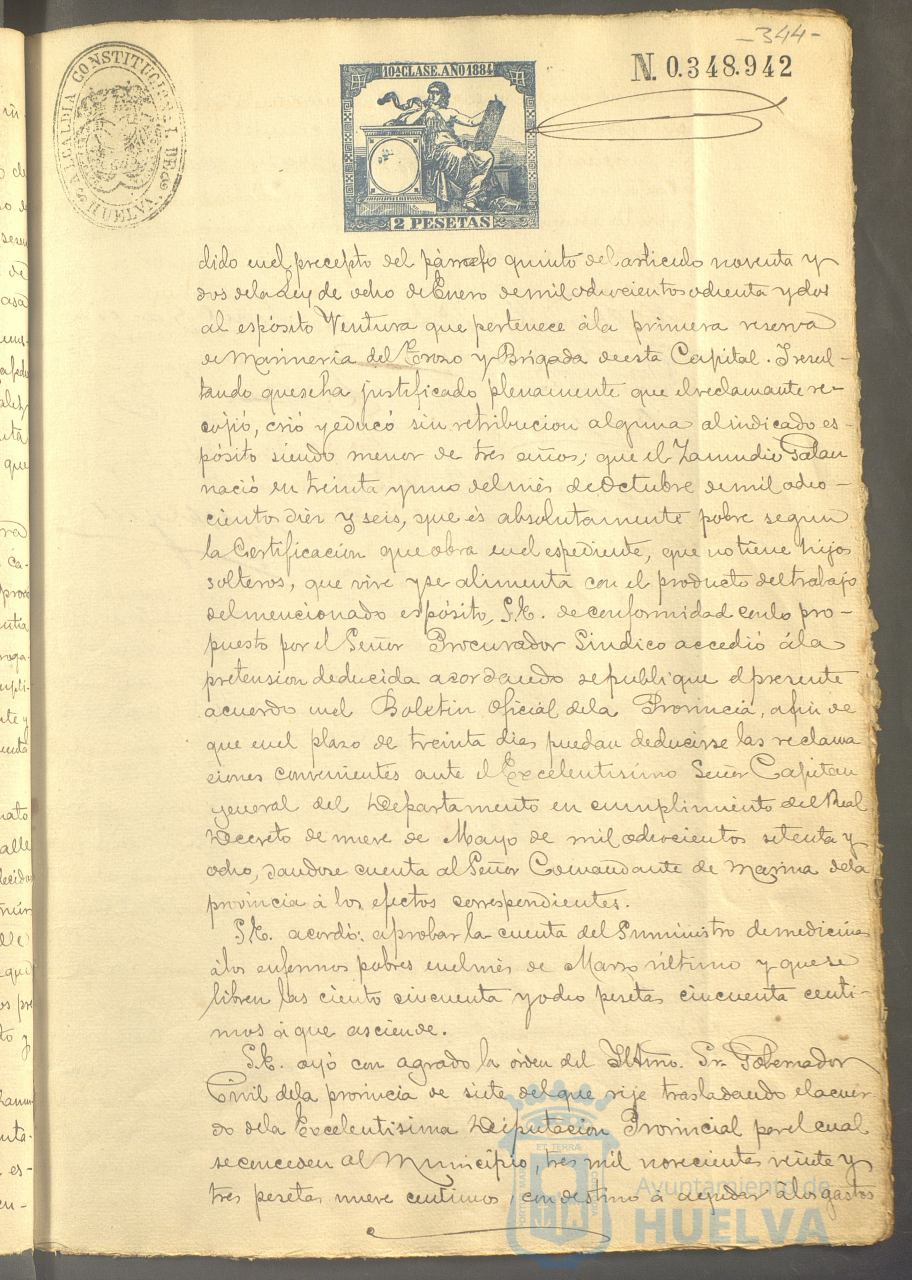 -344-
ALCALDIA CONSTITUCIONAL DE HUELVA
10ª CLASE. AÑO 1884
N. 0.348.942
2 PESETAS
dido en el precepto del párrafo quinto del articulo noventa y
dos de la Ley de ocho de Enero de mil ochocientos ochenta y dos
al espósito Ventura que pertenece á la primera reserva
de Marineria del Trozo y Brigada de esta Capital. Iresul-
tando que se ha justificado plenamente que el reclamante re-
cojió, crió y educó sin retribucion alguna al indicado es-
pósito siendo menor de tres años; que el Zamudio Galan
nació en treinta y uno del mes de Octubre de mil ocho-
cientos diez y seis, que és absolutamente pobre segun
la Certificacion que obra en el espediente, que no tiene hijos
solteros, que vive y se alimenta con el producto del trabajo
del mencionado espósito, S.E. de conformidad con lo pro-
puesto por el Señor Procurador Sindico accedió á la
pretension deducida acordando se publique el presente
acuerdo en el Boletin Oficial de la Provincia, afin de
que en el plazo de treinta dias puedan deducirse las reclama
ciones convenientes ante el Excelentisimo Señor Capitan
general del Departamento en cumplimiento del Real
Decreto de nueve de Mayo de mil ochocientos setenta y
ocho, dandose cuenta al Señor Comandante de Marina de la
provincia á los efectos correspondientes.
S.E. acordó: aprobar la cuenta del Suministro de medicinas
á los enfermos pobres en el mes de Marzo último y que se
libren las ciento cincuenta y ocho pesetas cincuenta centi-
mos á que asciende.
S.E. oyó con agrado la órden del Iltmo. Sr. Gobernador
Civil de la provincia de siete del que rije trasladando el acuer-
do de la Excelentisima Diputacion Provincial por el cual
se conceden al Municipio, tres mil novecientas veinte y
tres pesetas nueve centimos, con destino á ayudar á los gastos
Ayuntamiento de
HUELVA